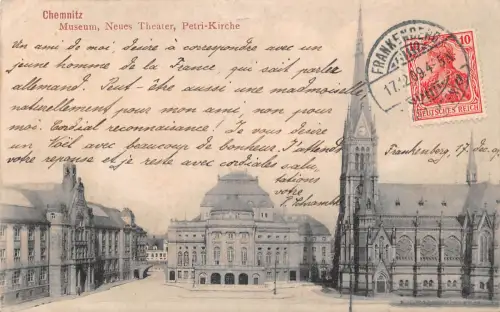 Chemnitz
Museum, Neues Theater, Petri-Kirche
Un ami de moi, désire à correspondre avec un
jeune homme de la France, qui sait parler
allemand. Peut-être aussi une madmoiselle
naturellement pour mon ami non pour
moi. Cordial reconnaisance, Je vous désire
un Noël avec beaucoup de bonheur. J'attends
votre réponse et je reste avec cordiales salu
tations
votre
Frankenberg 17. Dez. 09
FRANKENBERG
17.12.09.4-5N
10
DEUTSCHES REICH